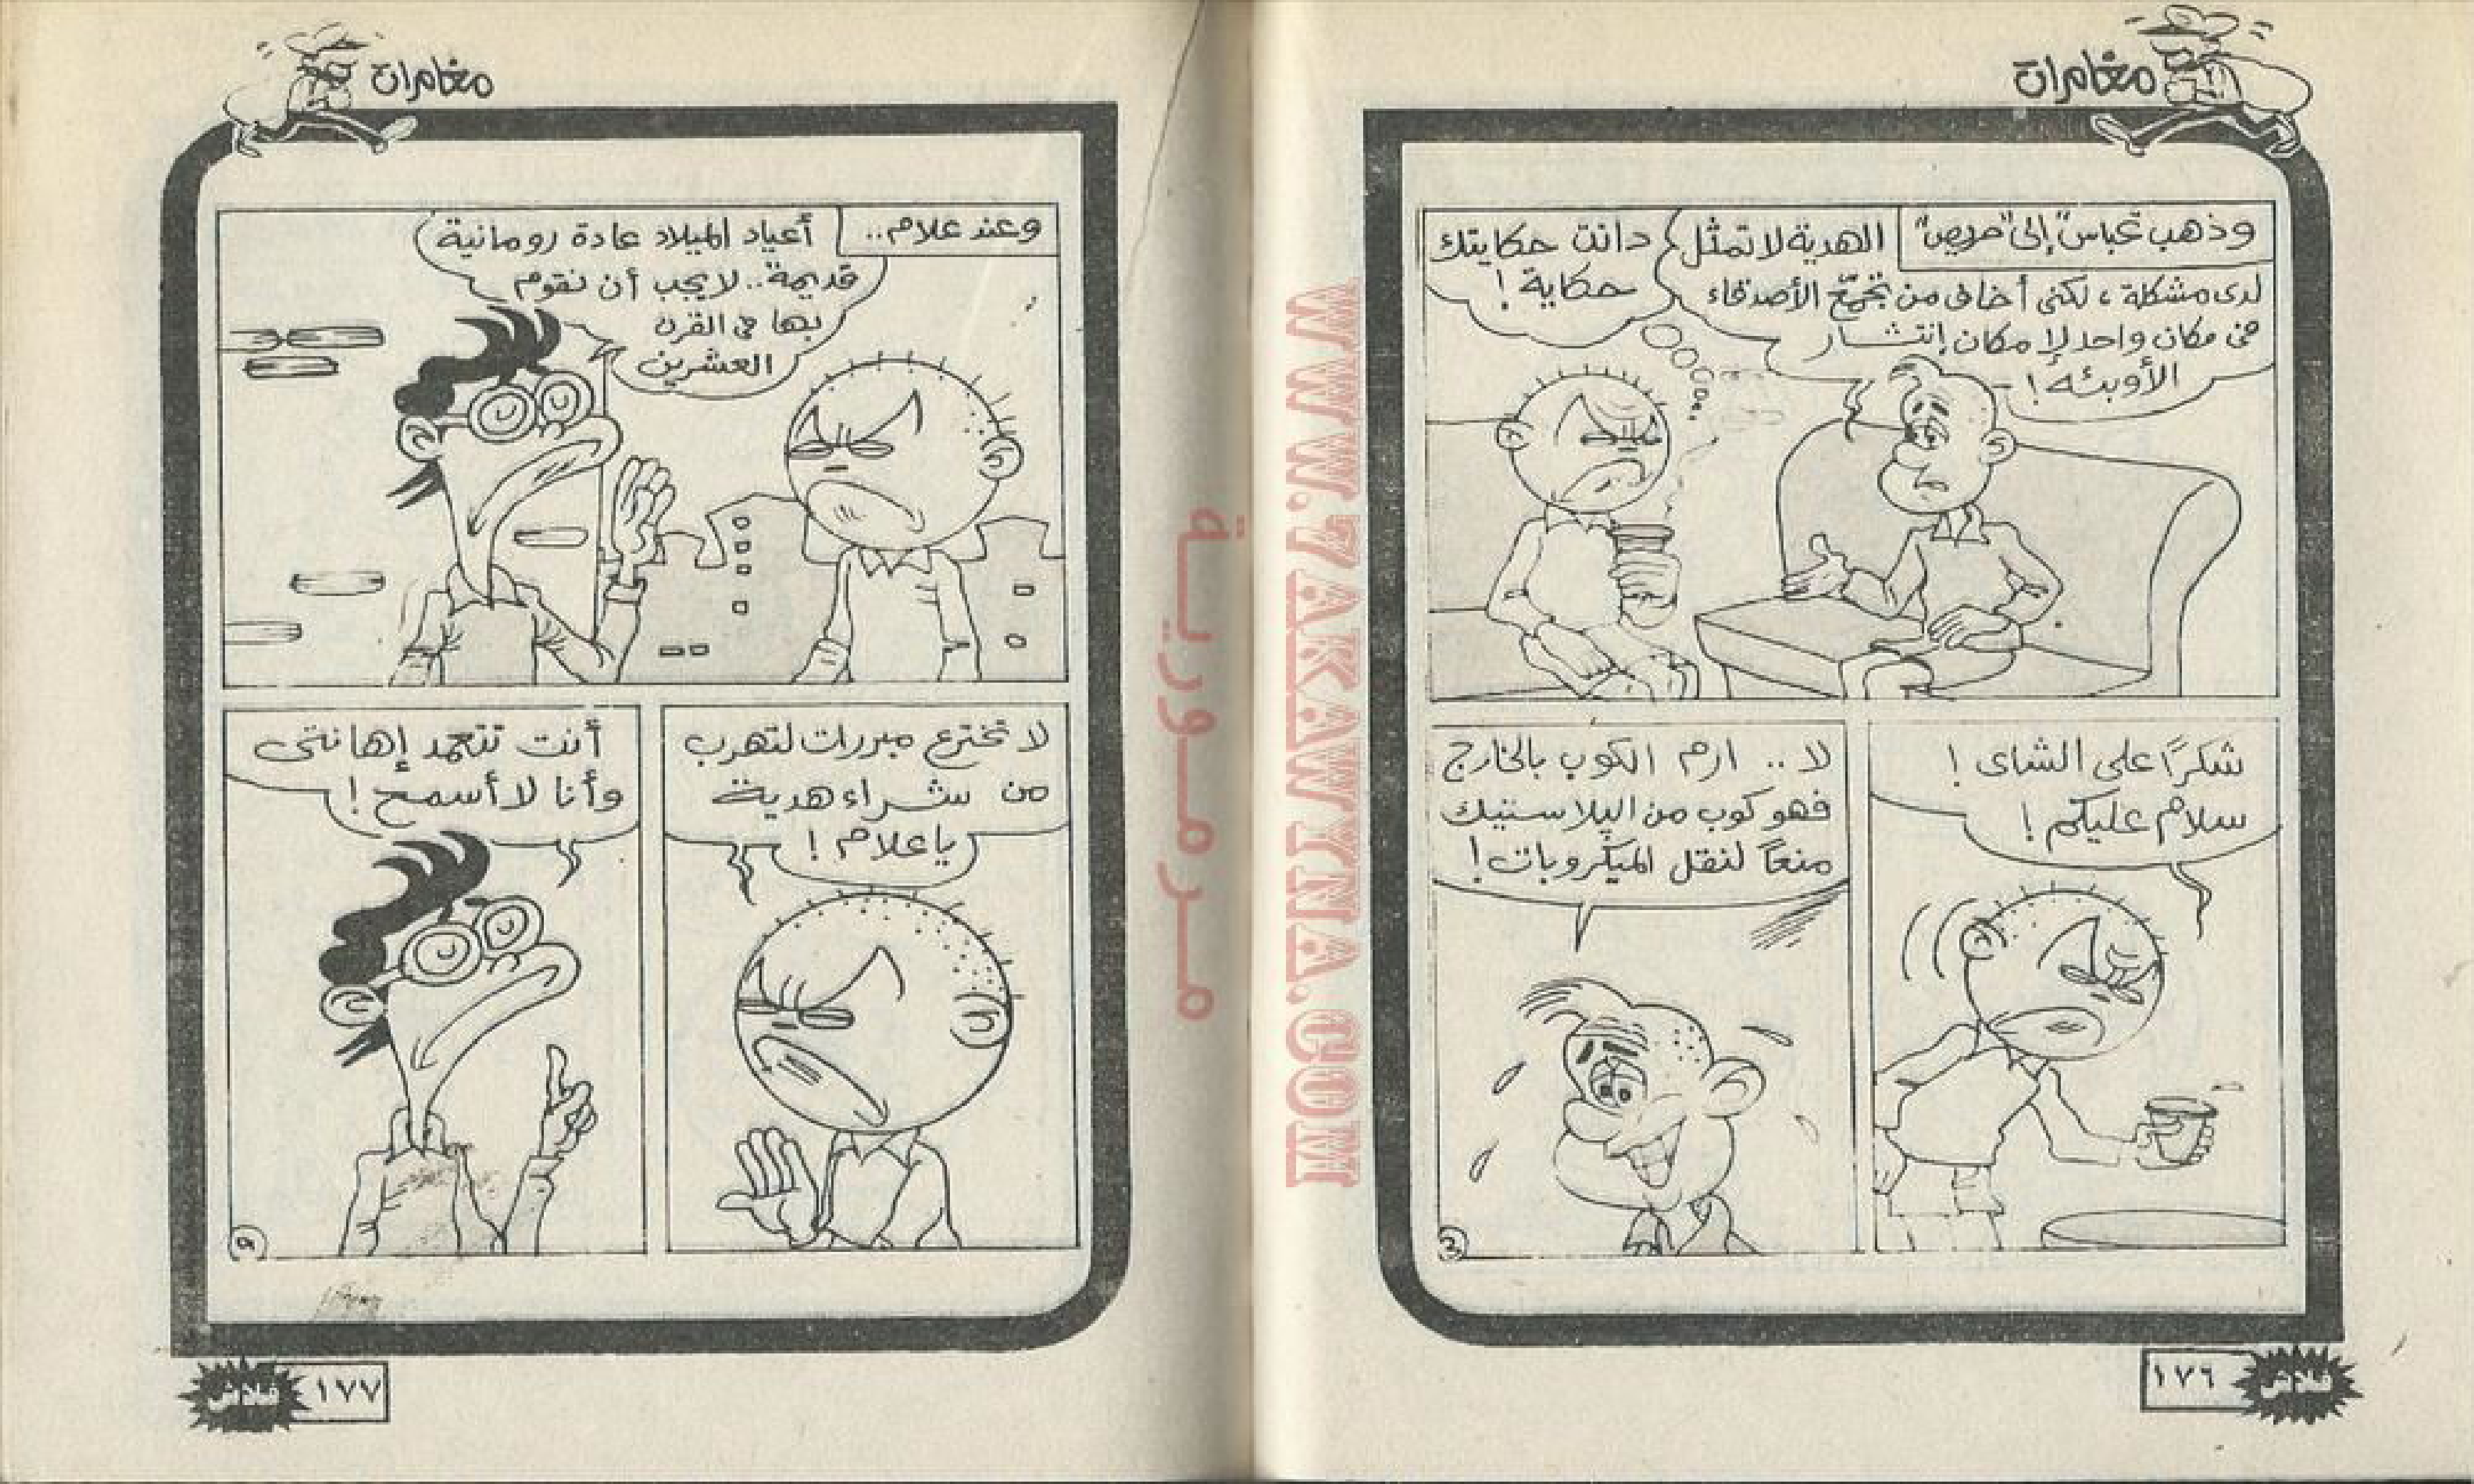 مغامرات
وذهب "عباس" إلى "حريص"
الهدية لا تمثل
لدى مشكلة، لكنى أخاف من تجمّع الأصدقاء
فى مكان واحد لإمكان إنتشار
الأوبئه!
دانت حكايتك
حكاية!
شكرًا على الشاى!
سلام عليكم!
لا.. ارم الكوب بالخارج
فهو كوب من البلاستيك
منعاً لنقل الميكروبات!
3
١٧٦
فلاش
مغامرات
وعند علام..
أعياد الميلاد عادة رومانية
قديمة.. لا يجب أن نقوم
بها فى القرن
العشرين
لا تخترع مبررات لتهرب
من شراء هدية
يا علام!
أنت تتعمد إهانتى
وأنا لا أسمح!
١٧٧
فلاش
WWW.7AKAWYNA.COM
مرمورية